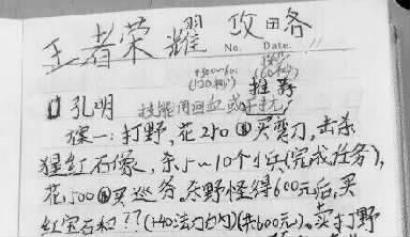 王者荣耀 攻略
No. Date.
推荐
孔明
技能用回血或
探一:打野,花250买弯刀,击杀
猩红石像,杀5~10个小兵(完成任务),
花500买巡务。杀野怪得600元后,买
红宝石和??(+40法力)(共600元)。卖打野